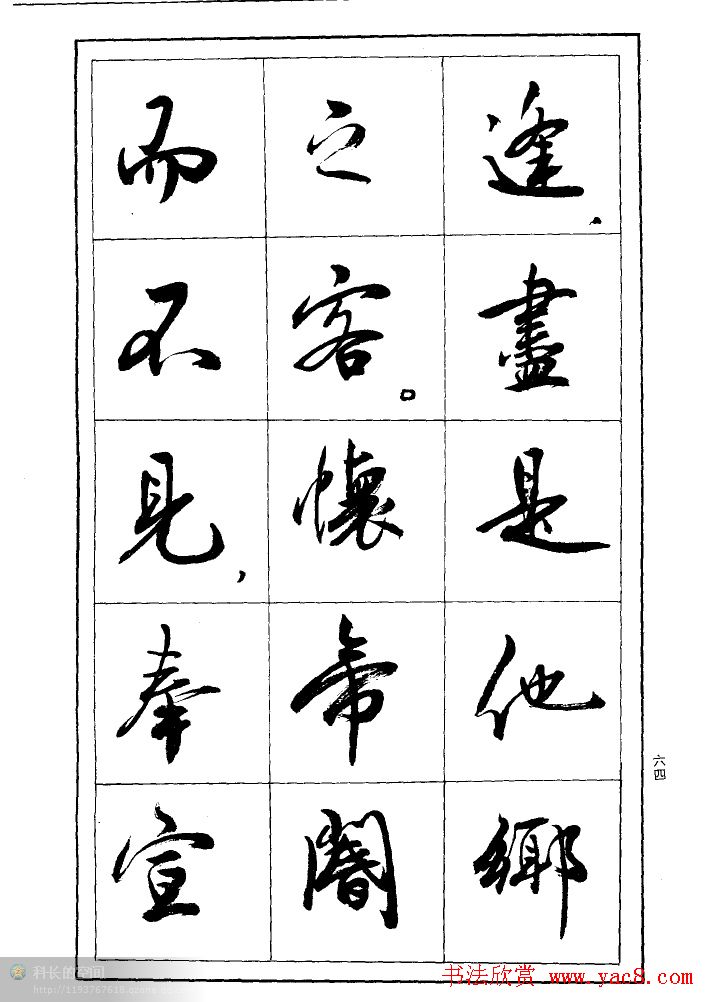 逢，盡是他鄉
之客。懷帝閽
而不見，奉宣
六四
科长的空间
http://1193767618.qzone.qq.com
书法欣赏 www.yac8.com